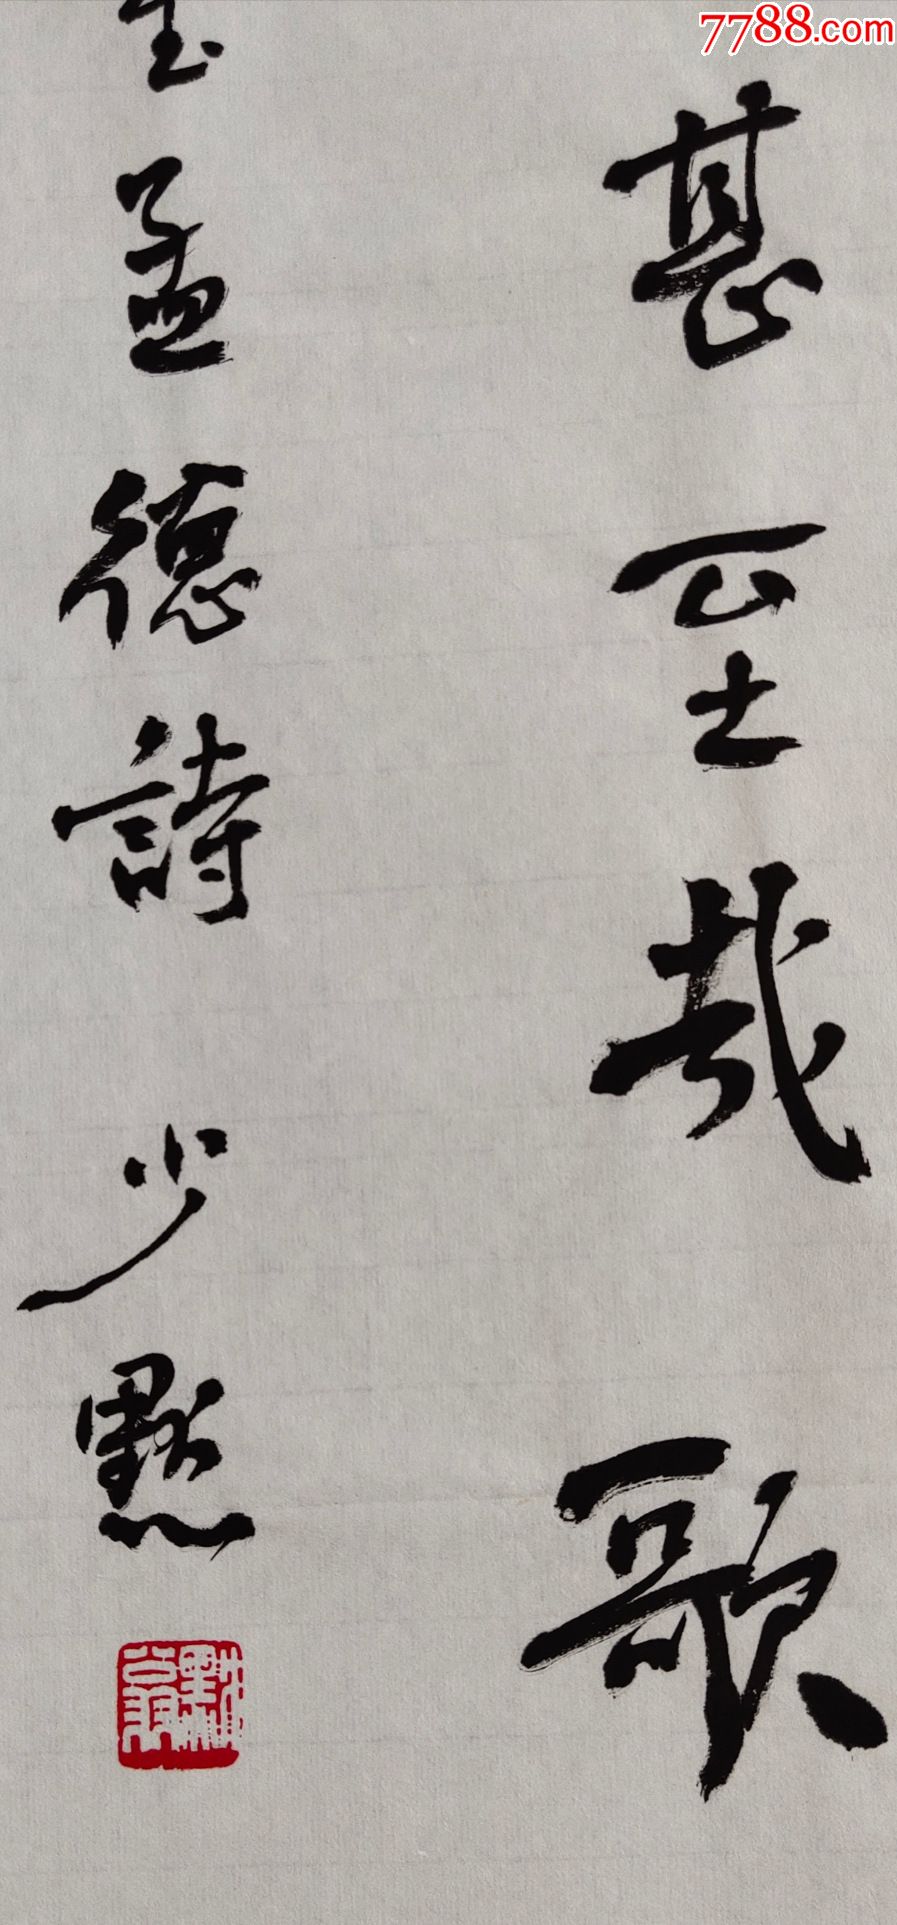 7788.com
甚至哉歌
孟德詩 少默
默翁